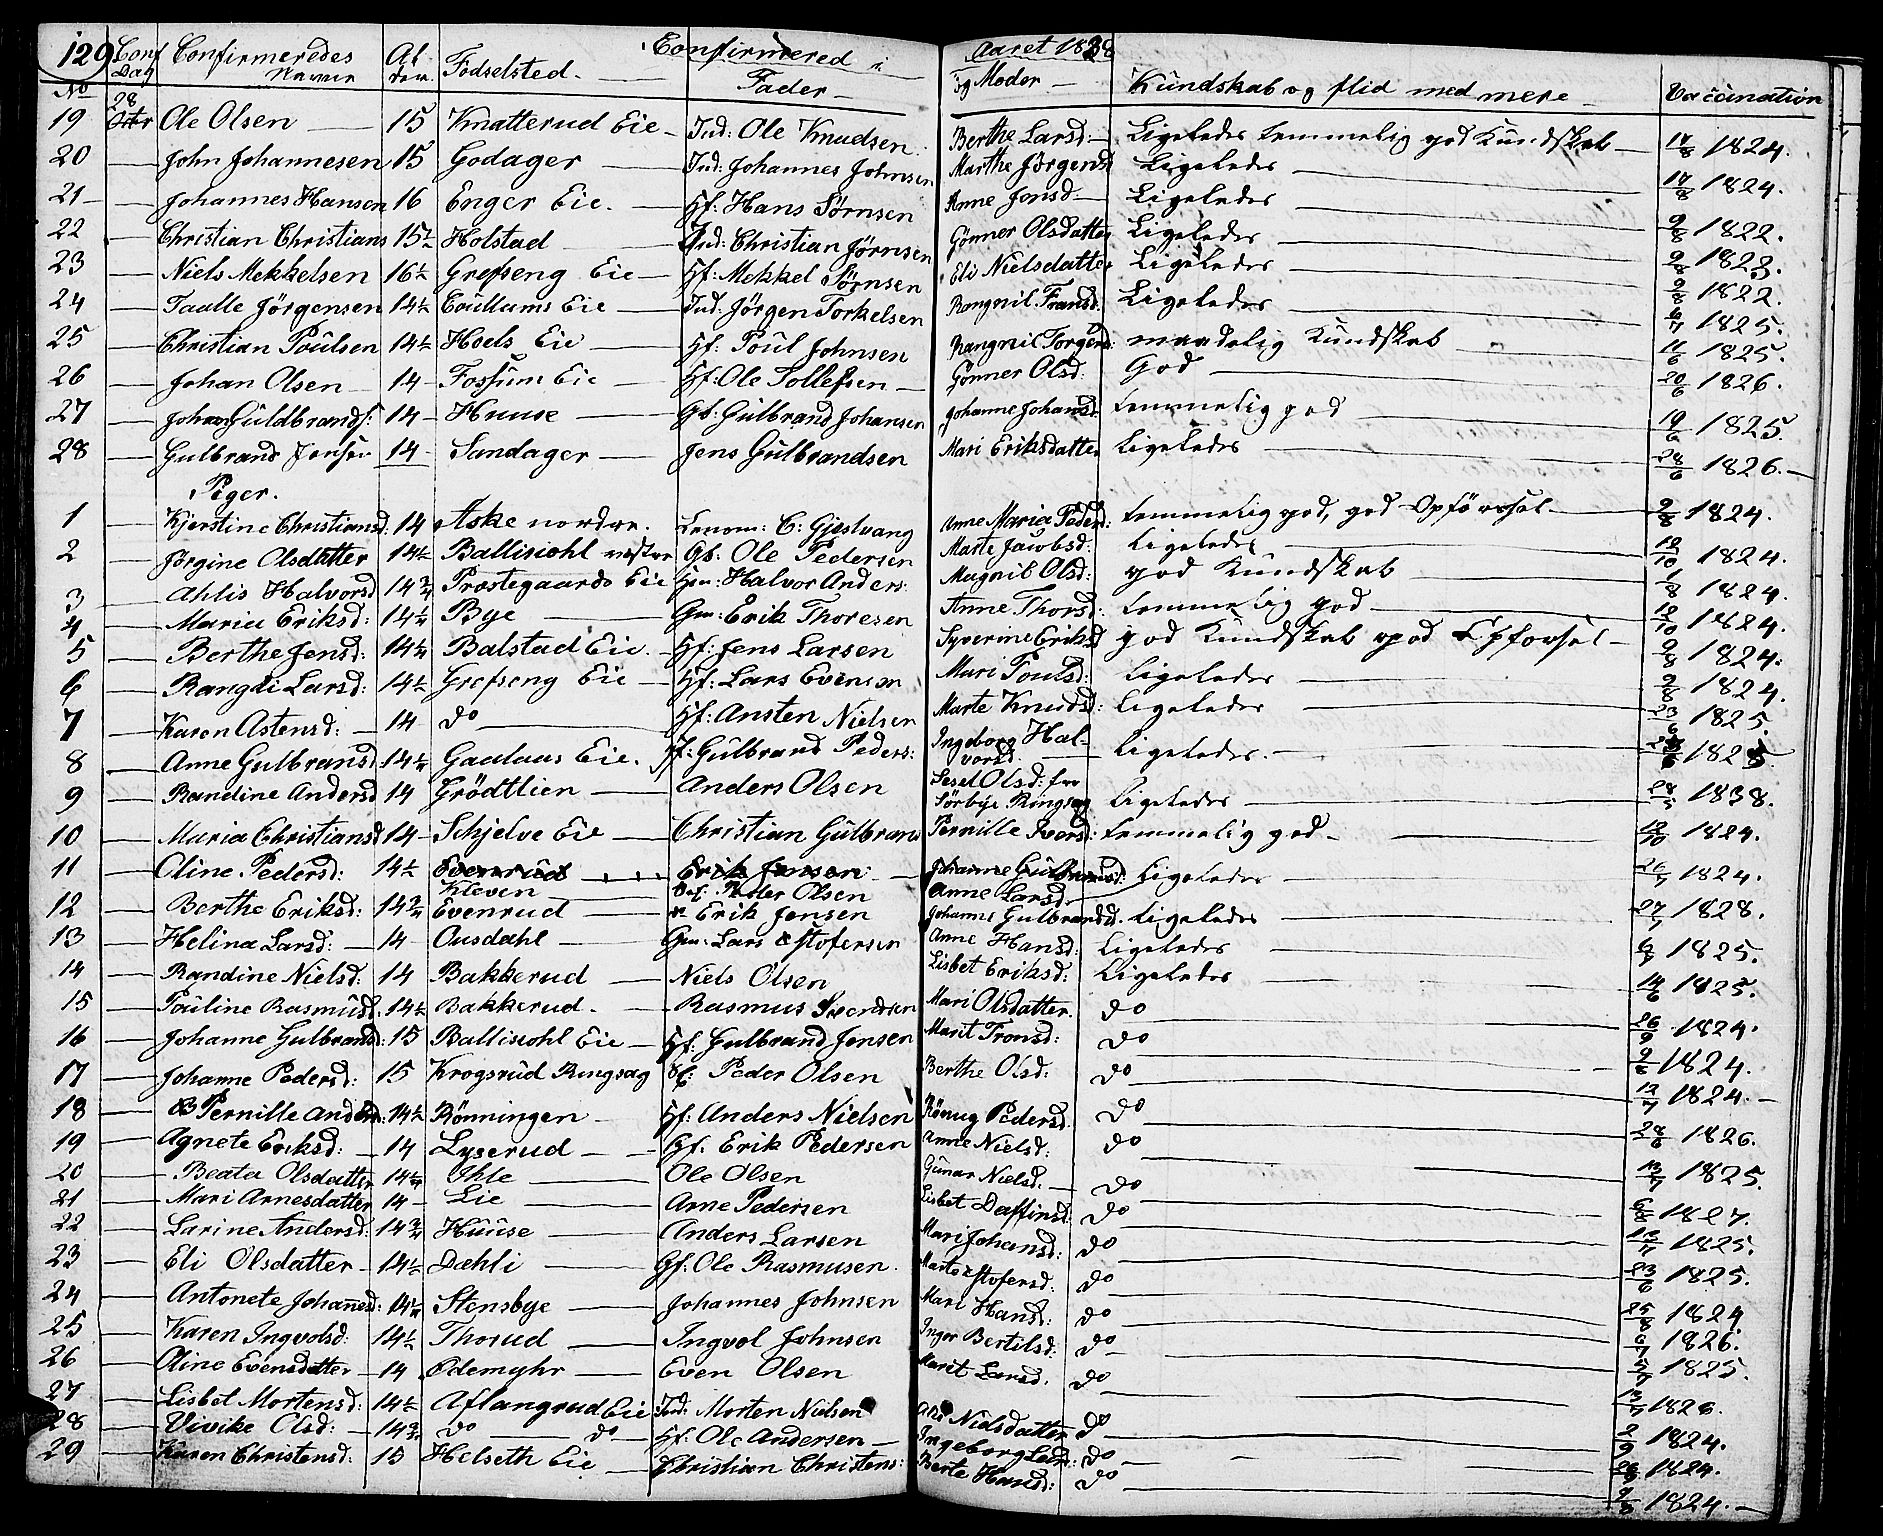 129 Conf Dag Confirmeredes Navne Al der. Födselsted. Confirmered i Aaret 1838
No Fader og Moder Kundskab og flid med mere Vaccination
19 28 Octbr Ole Olsen 15 Knatterud Eie Ind: Ole Knudsen Berthe Larsd: Ligeledes temmelig god Kundskab 17/8 1824.
20 John Johannesen 15 Godager Ind: Johannes Johnsen Marthe Jörgensd Ligeledes 17/8 1824.
21 Johannes Hansen 16 Enger Eie. Hf: Hans Sörnsen Anne Jonsd Ligeledes 9/8 1822.
22 Christian Christians 15½ Holstad Ind: Christian Jörnsen Gönner Olsdatter Ligeledes 9/8 1823.
23 Niels Mekkelsen 16½ Grefseng Eie Hf: Mekkel Sörnsen Eli Nielsdatter Ligeledes 9/8 1822.
24 Taalle Jörgensen 14½ Coullums Eie Ind: Jörgen Torkelsen Rangnil Fransd: Ligeledes 6/7 1825.
25 Christian Poulsen 14½ Hoels Eie Hf: Poul Johnsen Rangnil Torgersd: maadelig Kundskab 11/6 1825.
26 Johan Olsen 14 Fossum Eie Hf: Ole Tollefsen Gönner Olsd: God 20/6 1826.
27 Johan Guldbrands: 14 Huuse Gb: Gulbrand Johansen Johanne Johansd: temmelig god 19/6 1825.
28 Gulbrand Jensen 14 Sandager Jens Gulbrandsen Mari Eriksdatter Ligeledes 28/6 1826.
Piger.
1 Kjerstine Christiansd: 14 Aske nordre. C: Gjestvang Anne Maria Pedersd: temmelig god, god Opförsel 9/8 1824.
2 Jörgine Olsdatter 14½ Ballisiohl vestre Gb: Ole Pedersen Marte Jacobsd: Ligeledes 12/10 1824.
3 Ahlis Halvorsd 14¾ Prostegaards Eie Hm: Halvor Anders: Magnil Olsd: god Kundskab 1/8 1824.
4 Maria Eriksd: 14¼ Bye Gm: Erik Thoresen Anne Thorsd: temmelig god 12/10 1824.
5 Berthe Jensd: 14¼ Balstad Eie. Hf: Jens Larsen Syverine Eriksd god Kundskab og god Opförsel 9/8 1824.
6 Rangdi Larsd: 14½ Grefseng Eie Hf: Lars Evensen Mari Poulsd: Ligeledes 9/8 1824.
7 Karen Astensd: 14 do Hf: Ansten Nielsen Marte Knudsd: Ligeledes 23/6 1825.
8 Anne Gulbransd 14¼ Gaalaas Eie. Hf: Gulbrand Peders: Ingeborg Halvorsd: Ligeledes. 1825.
9 Randine Andersd 14 Grödtlien Anders Olsen Sesel Olsd: fra Sörbye Ringsag Ligeledes 1838.
10 Maria Christiansd 14 Schjelve Eie Christian Gulbrans Pernille Iversd: temmelig god 12/10 1824.
11 Oline Pedersd: 14½ Evenrud Kleven Erik Jensen Hf. Peder Olsen Johanne Gulbransd: Anne Larsd Ligeledes 26/7 1824.
12 Berthe Eriksd: 14¾ Evenrud Erik Jensen Johanne Gulbrandsd. Ligeledes 27/7 1828.
13 Helina Larsd: 14 Ousdahl Gm: Lars Xstofersen Anne Hansd: Ligeledes 6/7 1825.
14 Randine Nielsd: 14 Bakkerud Niels Olsen Lisbet Eriksd: Ligeledes 14/6 1825.
15 Pauline Rasmusd. 14½ Bakkerud. Rasmus Svendsen Mari Olsdatter. do 26/9 1824.
16 Johanne Gulbransd: 15 Ballisiohl Eie Hf: Gulbrand Jensen Marit Tronsd: do 9/8 1824.
17 Johanne Pedersd: 15 Krogsrud Ringsag Hf: Peder Olsen Berthe Olsd: do 13/7 1824.
18 Pernille Andersd: 14½ Rönningen Hf: Anders Nielsen Rönug Pedersd. do 28/6 1826.
19 Agnete Eriksd: 14 Lyserud Hf. Erik Pedersen Anne Nielsd: do 13/7 1825.
20 Beata Olsdatter 14¼ Ihle Ole Olsen Gunar Nielsd. do 6/8 1827.
21 Mari Arnesdatter 14 Lie Arne Pedersen Lisbet Daffinsd: do 13/7 1825.
22 Larine Andersd: 14¾ Huuse Anders Larsen Mari Johansd: do 23/6 1825.
23 Eli Olsdatter 14½ Dæhli Gf: Ole Rasmusen. Marte Xstofersd: do 25/8 1824
24 Antonete Johanesd: 14¼ Stensbye Johannes Johnsen Mari Hansd: do 6/7 1826.
25 Karen Ingvolsd: 14½ Thorud Ingvol Johnsen Inger Bertilsd: do 5/7 1825.
26 Oline Evensdatter 14 Ødemyhr Even Olsen Marit Larsd. do 13/7 1826.
27 Lisbet Mortensd: 14½ Aflangrud Eie Ind: Morten Nielsen Nielsdatter do 2/9 1824.
28 Vivike Olsd: 14¾ do do Hf: Ole Andersen Ingeborg do 1824.
29 Karen Christensd: 15 Helseth Eie Christian Christens: Berte Hansd: do 9/8 1824.